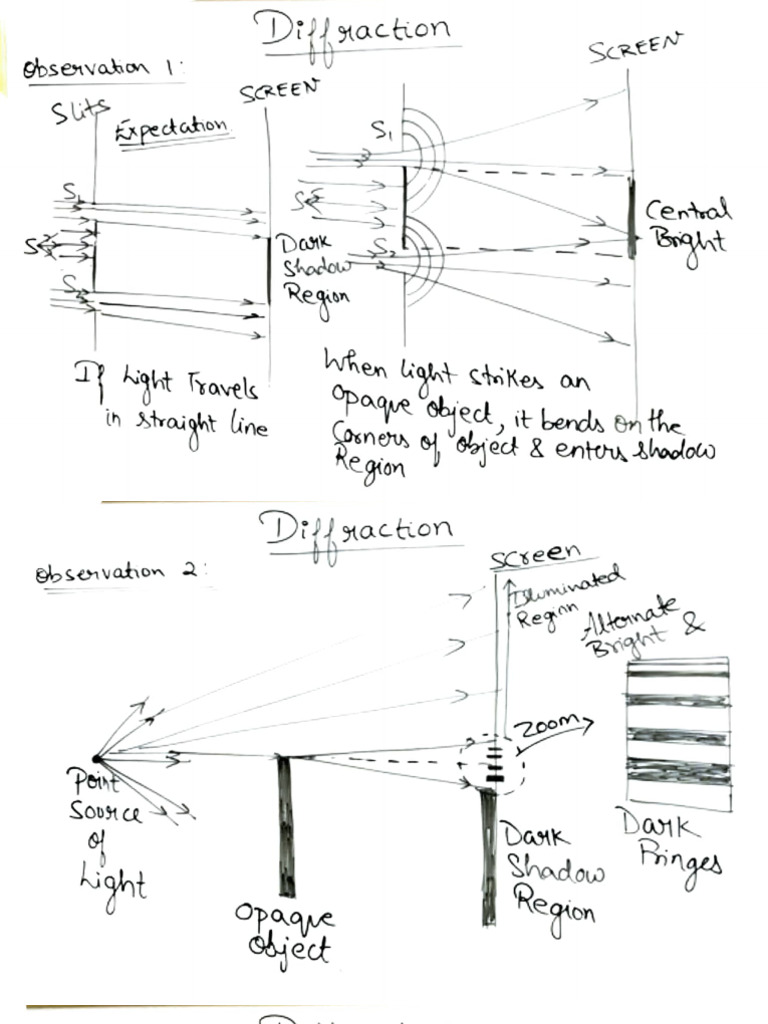 Diffraction
Observation 1:
SCREEN
SCREEN
Slits
Expectation
S1
S1
S
S
S2
S2
Dark
Shadow
Region
Central
Bright
If Light Travels
in straight line
When light strikes an
opaque object, it bends on the
Corners of object & enters shadow
Region
Diffraction
Observation 2:
Screen
Illuminated
Region
Alternate
Bright &
Zoom
Point
Source
of
Light
Opaque
Object
Dark
Shadow
Region
Dark
Fringes